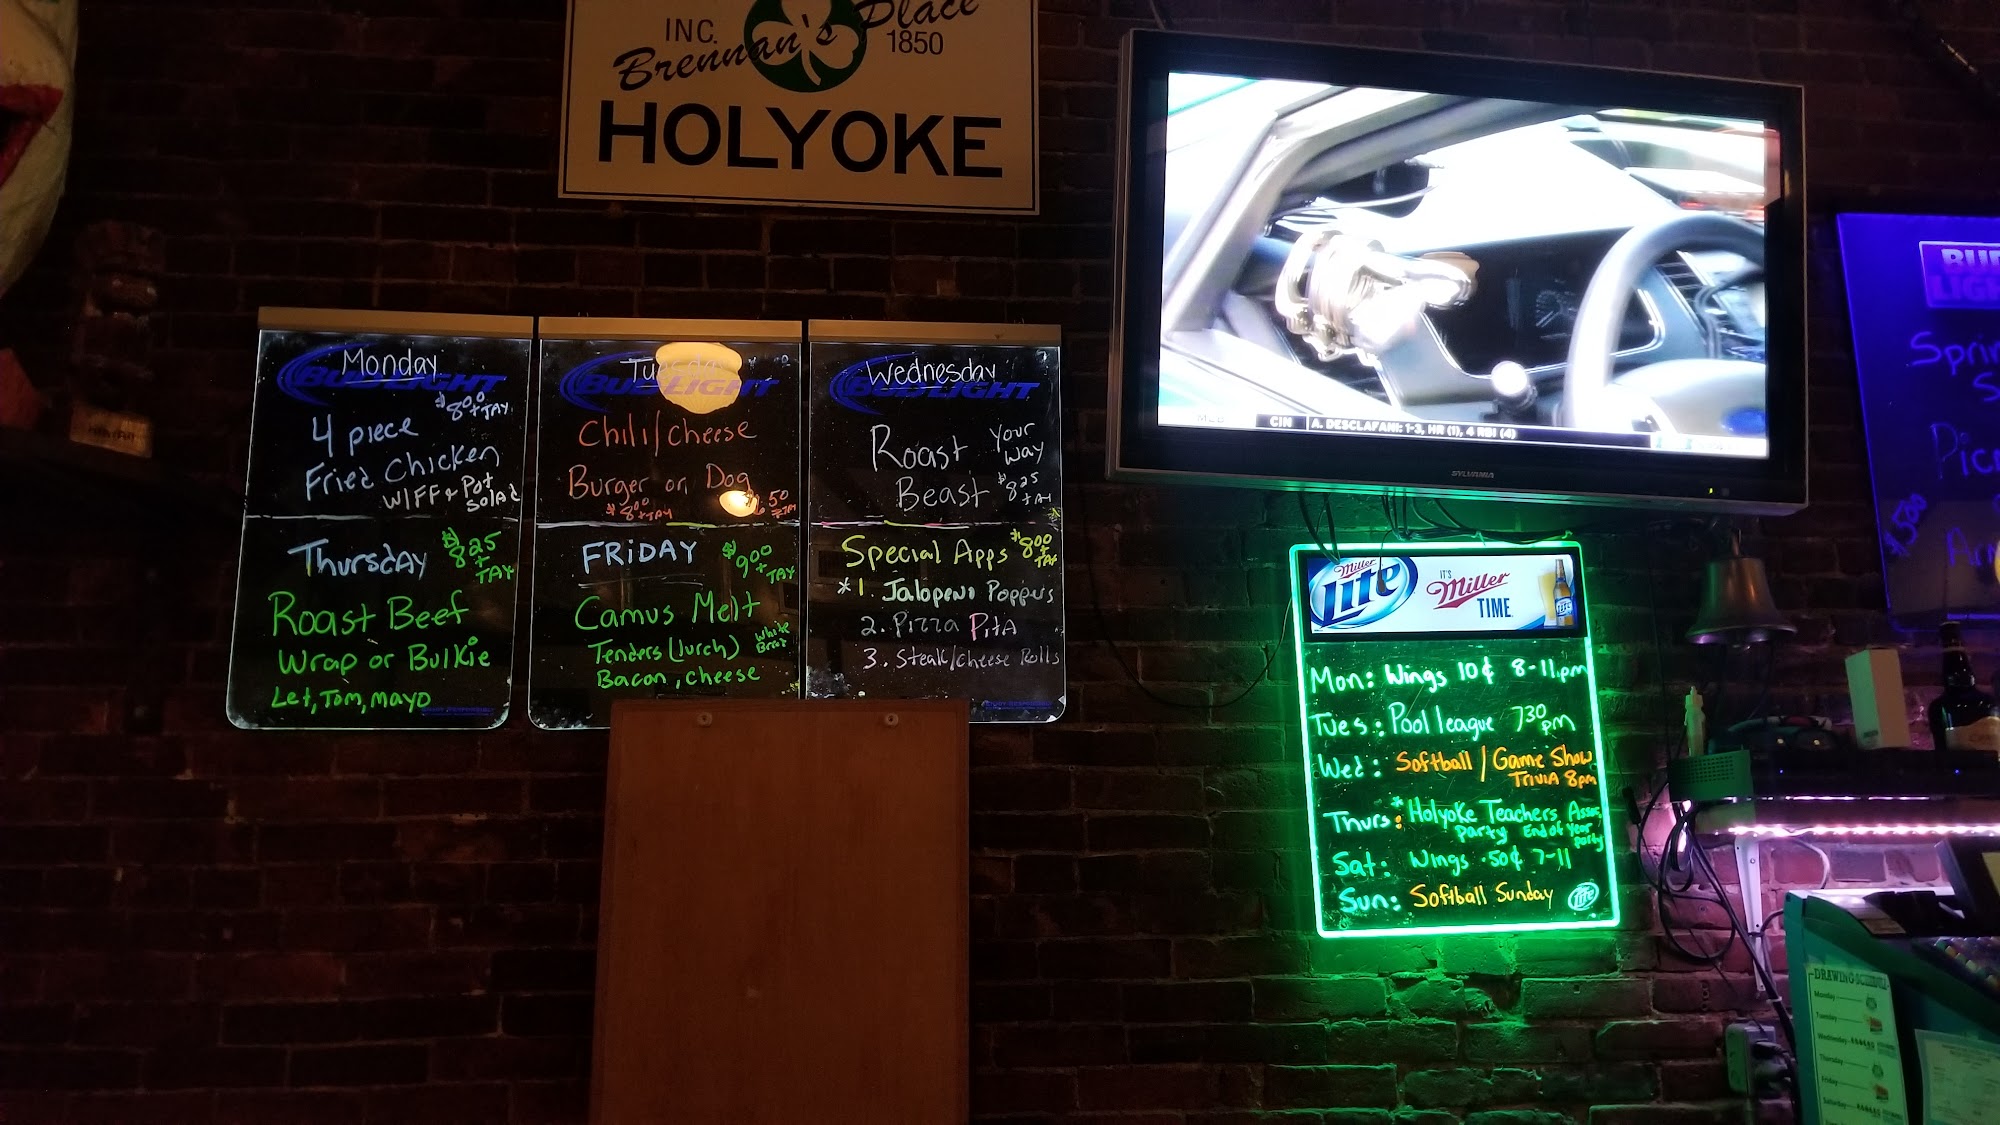 INC.
Brennan's Place
1850
HOLYOKE
Monday
BUD LIGHT
$8.00 + TAX
4 piece
Fried Chicken
W/FF + Pot
Salad
Tuesday
BUD LIGHT
Chili/Cheese
Burger or Dog
$8.00 + TAX
6.50
Wednesday
BUD LIGHT
Roast
Your
Way
Beast
$8.25
+ TAX
Thursday
$8.25
+ TAX
Roast Beef
Wrap or Bulkie
Let, Tom, Mayo
FRIDAY
$9.00
+ TAX
Camus Melt
Tenders (lurch)
White
Bread
Bacon, cheese
Special Apps
$8.00
+ TAX
*1. Jalopeno Poppers
2. Pizza Pita
3. Steak/cheese Rolls
CIN A. DESCLAFANI: 1-3, HR (1), 4 RBI (4)
SYLVANIA
Miller
Lite
IT'S
Miller
TIME.
Mon: Wings 10¢ 8-11pm
Tues: Pool league 730 pm
Wed: Softball/Game Show
Trivia 8pm
Thurs: *Holyoke Teachers Assoc.
party End of Year
party
Sat: Wings .50¢ 7-11
Sun: Softball Sunday
Lite
BUD
LIGHT
$500
DRAWING SCHEDULE
Monday
Tuesday
Wednesday
Thursday
Friday
Saturday